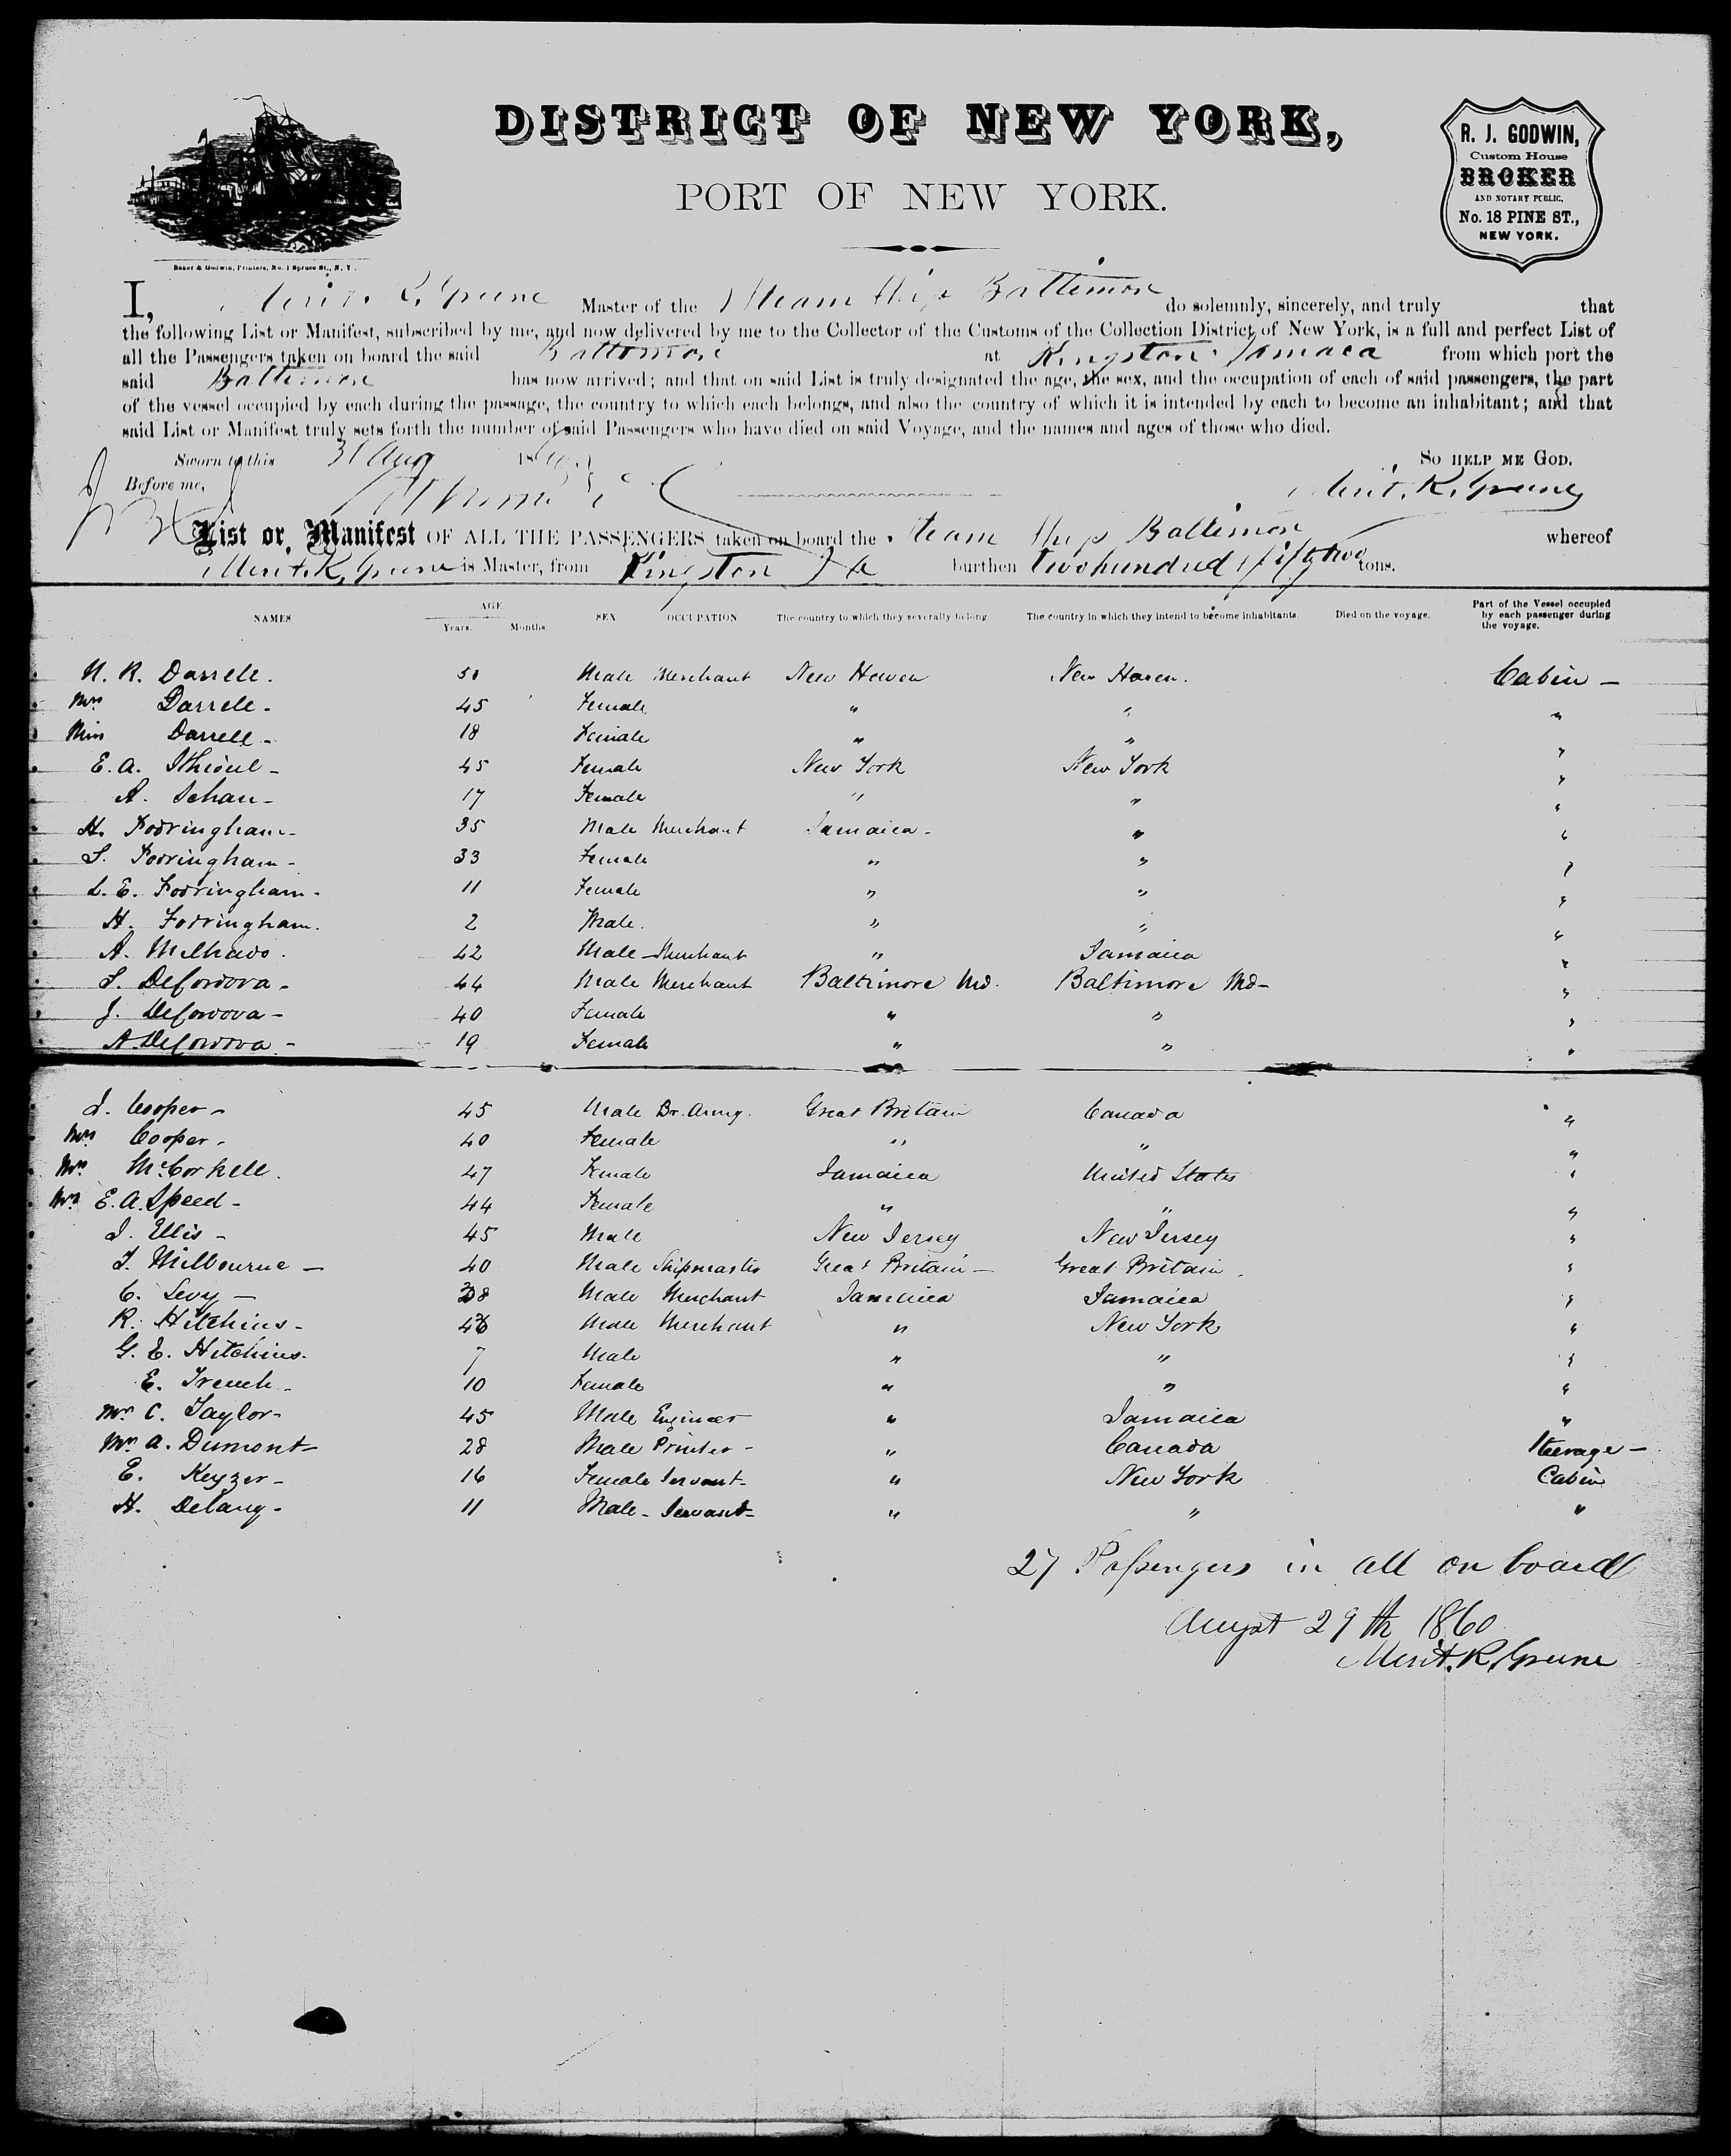 DISTRICT OF NEW YORK,
PORT OF NEW YORK.
R. J. GODWIN,
Custom House
BROKER
AND NOTARY PUBLIC,
No. 18 PINE ST.,
NEW YORK.
Baker & Godwin, Printers, No. 1 Spruce St., N. Y.
I, Merit. R. Greene Master of the Steam Ship Baltimore do solemnly, sincerely, and truly that
the following List or Manifest, subscribed by me, and now delivered by me to the Collector of the Customs of the Collection District of New York, is a full and perfect List of
all the Passengers taken on board the said Baltimore at Kingston Jamaca from which port the
said Baltimore has now arrived; and that on said List is truly designated the age, the sex, and the occupation of each of said passengers, the part
of the vessel occupied by each during the passage, the country to which each belongs, and also the country of which it is intended by each to become an inhabitant; and that
said List or Manifest truly sets forth the number of said Passengers who have died on said Voyage, and the names and ages of those who died.
Sworn to this 31 Aug 1860 SO HELP ME GOD.
Before me, Merit. R. Greene
List or Manifest OF ALL THE PASSENGERS taken on board the Steam Ship Baltimore whereof
Merit. R. Greene is Master, from Kingston Ja burthen Two hundred & fifty two tons.
NAMES AGE Years. Months. SEX OCCUPATION The country to which they severally belong The country in which they intend to become inhabitants. Died on the voyage. Part of the Vessel occupied by each passenger during the voyage.
N. R. Darrell. 50 Male Merchant New Haven New Haven. Cabin -
Mrs Darrell - 45 Female " " "
Miss Darrell - 18 Female " " "
E. A. 45 Female New York New York "
A. 17 Female " " "
H. Fodringham - 35 Male Merchant Jamaica - " "
S. Fodringham - 33 Female " " "
L. E. Fodringham - 11 Female " " "
H. Fodringham. 2 Male. " " "
A. Melhado. 42 Male - Merchant " Jamaica "
S. DeCordova - 44 Male Merchant Baltimore Md. Baltimore Md - "
J. DeCordova - 40 Female " " "
A. DeCordova - 19 Female " " "
J. Cooper - 45 Male Br. Army. Great Britain Canada "
Mrs Cooper - 40 Female " " "
Mrs McCorkell. 47 Female Jamaica United States "
Mrs E. A. Speed - 44 Female " " "
J. Ellis - 45 Male New Jersey New Jersey "
T. Milbourne - 40 Male Shipmaster Great Britain - Great Britain. "
C. Levy - 38 Male Merchant Jamaica Jamaica "
R. Hitchins - 46 Male Merchant " New York "
G. E. Hitchins. 7 Male " " "
E. French - 10 Female " " "
Mr. C. Taylor - 45 Male Engineer " Jamaica "
Mr. A. Dumont - 28 Male Printer - " Canada Steerage -
E. Keyzer - 16 Female Servant - " New York Cabin
H. Delany - 11 Male - Servant - " " "
27 Passengers in all on board
August 29th 1860
Merit. R. Greene